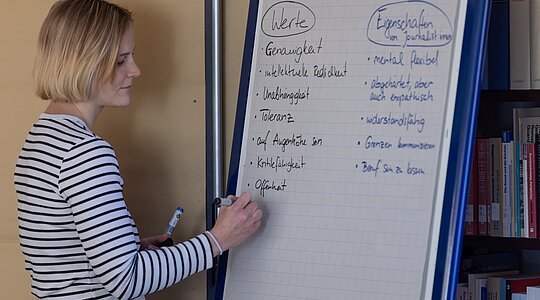 Werte
• Genauigkeit
• intellektuelle Redlichkeit
• Unabhängigkeit
• Toleranz
• auf Augenhöhe sein
• Kritikfähigkeit
• Offenheit
Eigenschaften
von Journalist*innen
• mental flexibel
• abgehärtet, aber
auch empathisch
• widerstandsfähig
• Grenzen kommunizieren
• Beruf sein zu lassen